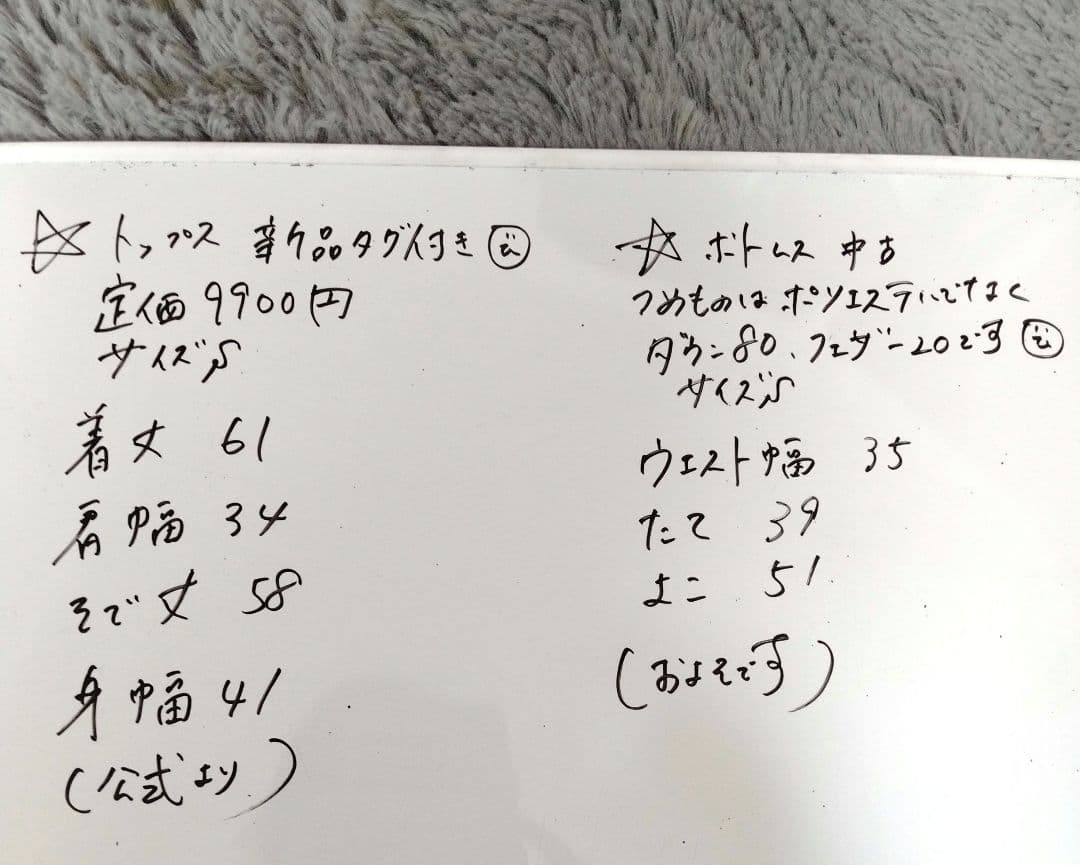 ☆トップス 新品タグ付き
定価9900円
サイズS
着丈 61
肩幅 34
そで丈 58
身幅 41
(公式より)
☆ボトムス 中古
つめものはポリエステルでなく
ダウン80、フェザー20です
サイズS
ウエスト幅 35
たて 39
よこ 51
(およそです)